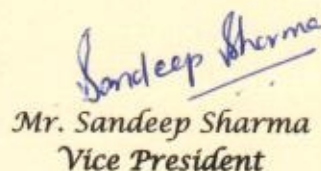 Sandeep Sharma
Mr. Sandeep Sharma
Vice President